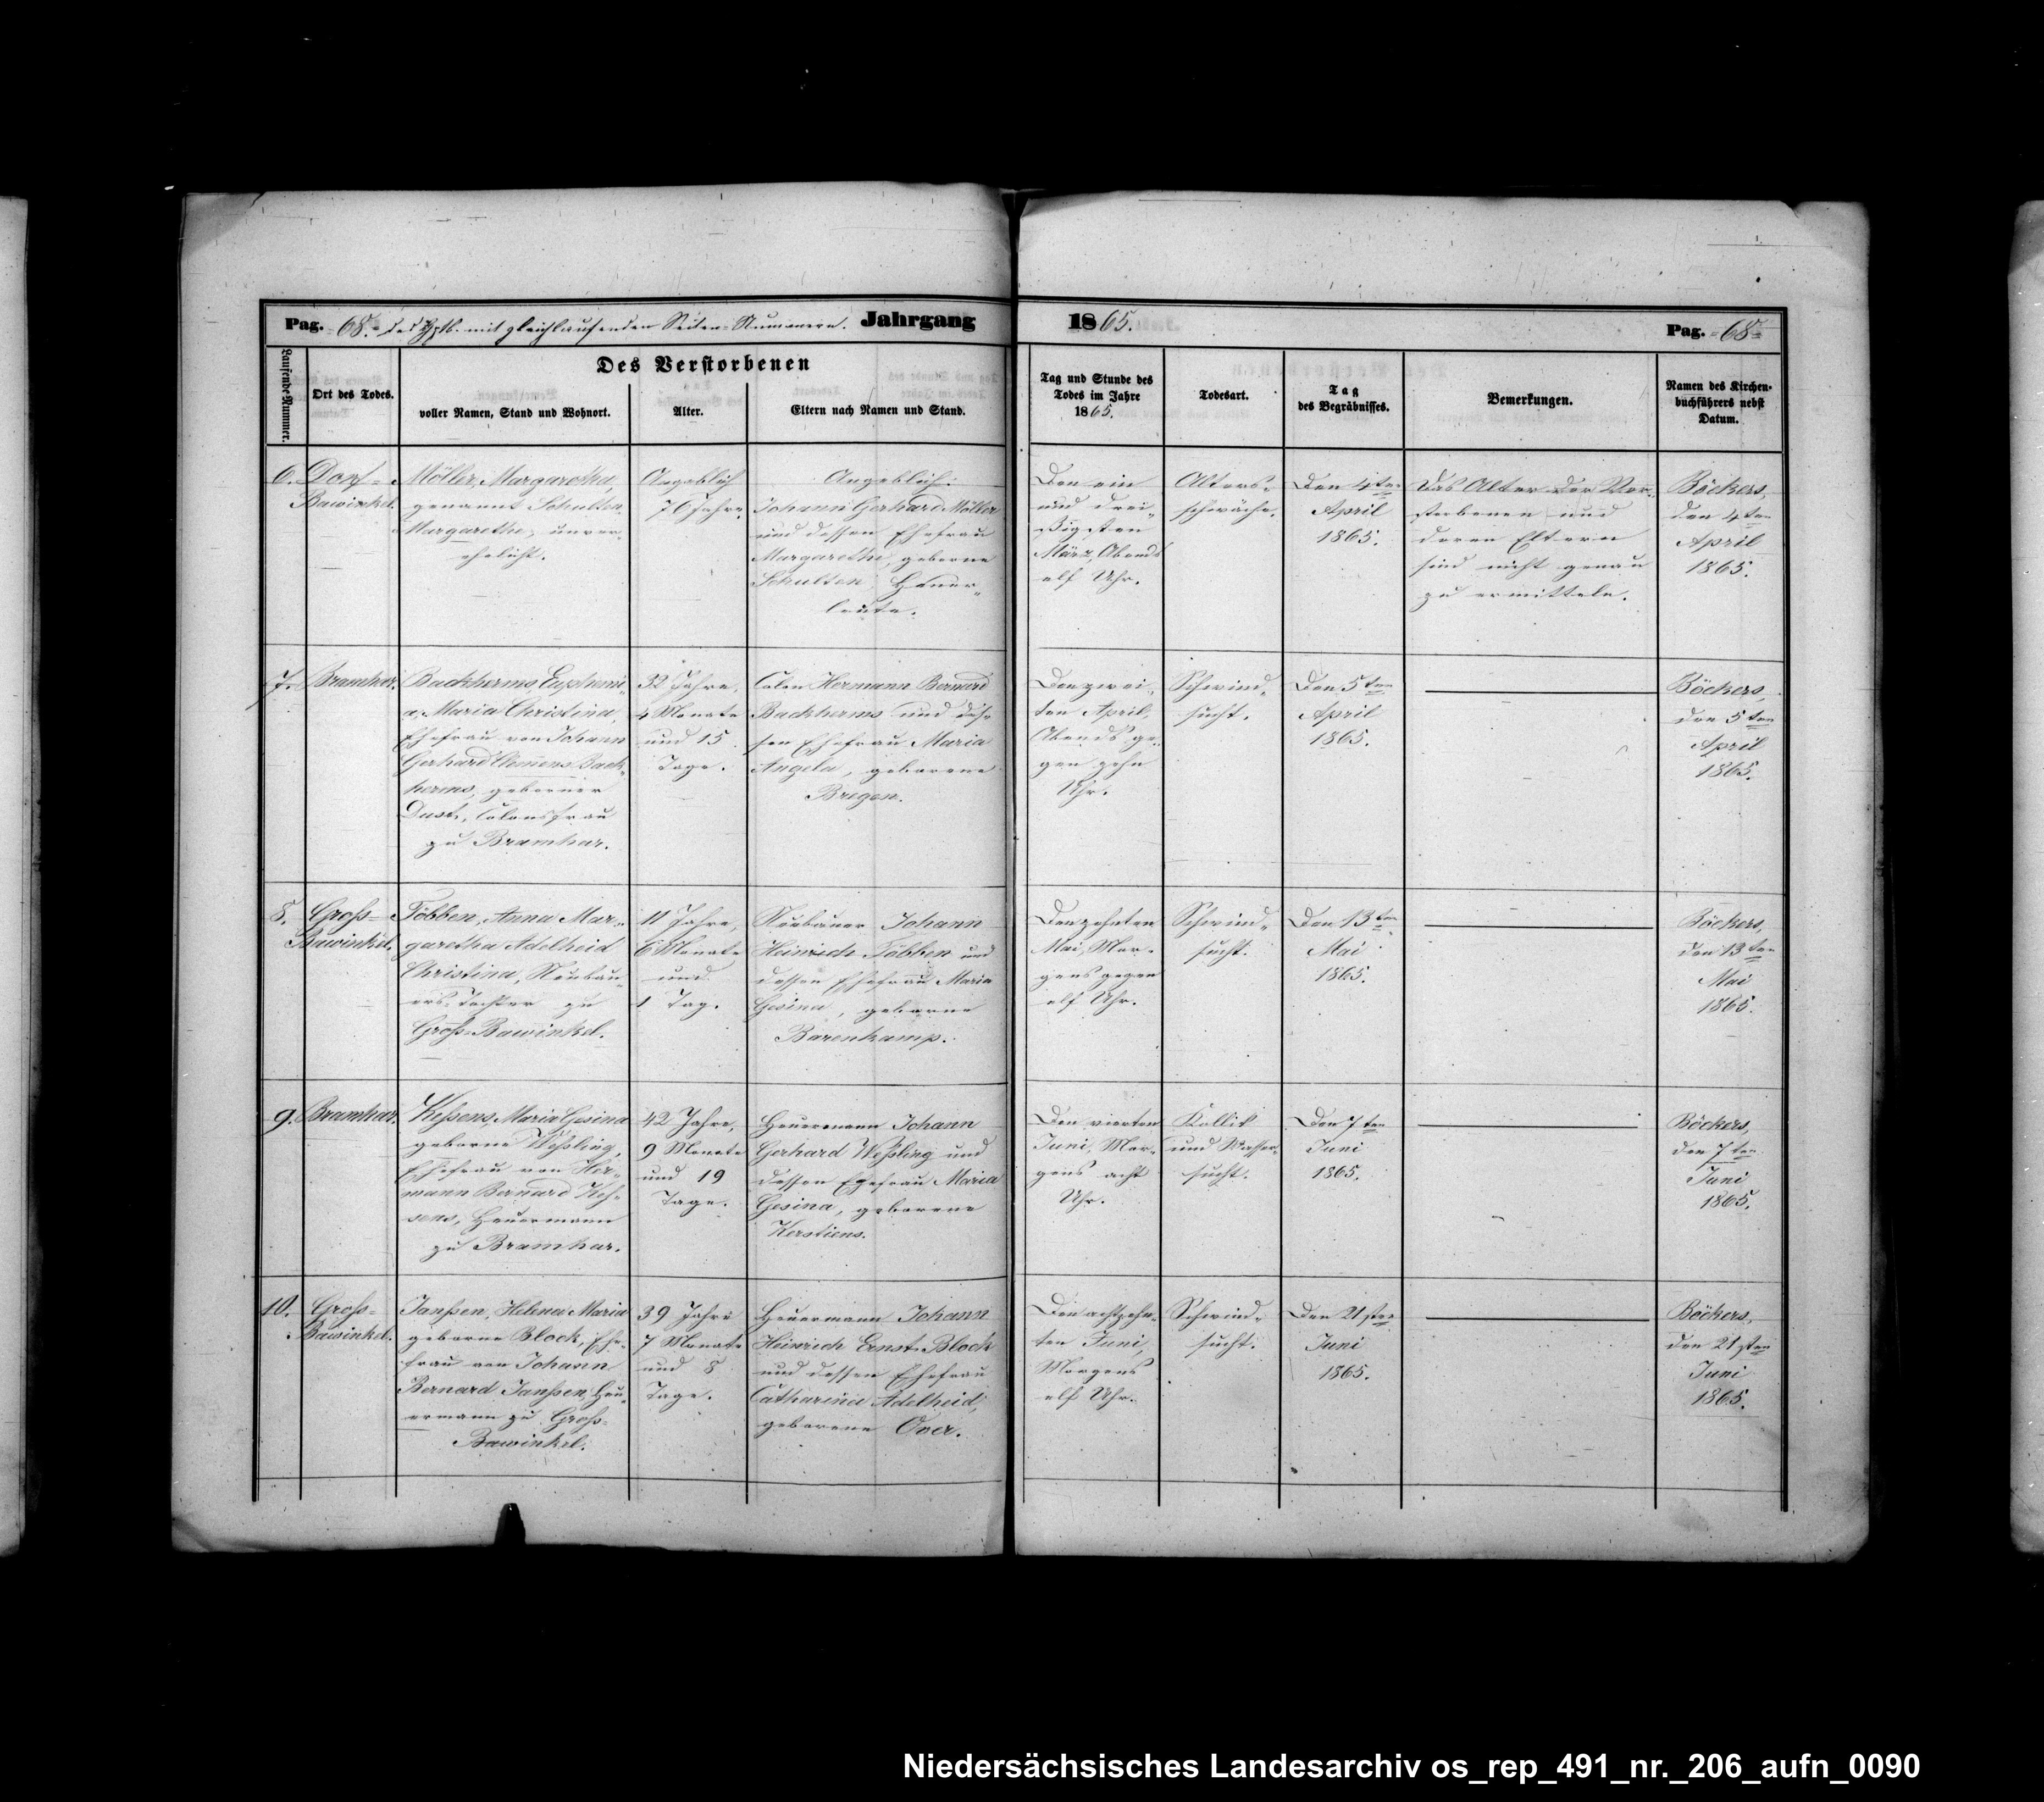 Pag. 68. des Hptb. mit gleichlaufenden Seiten-Nummern. Jahrgang 1865. Pag. 68
Laufende Nummer.
Ort des Todes.
Des Verstorbenen
voller Namen, Stand und Wohnort.
Alter.
Eltern nach Namen und Stand.
Tag und Stunde des
Todes im Jahre
1865.
Todesart.
Tag
des Begräbnisses.
Bemerkungen.
Namen des Kirchen-
buchführers nebst
Datum.
6.
Dorf-
Bawinkel.
Möller, Margaretha,
genannt Schulten
Margarethe, unver-
ehelicht.
Angeblich
76 Jahre.
Angeblich:
Johann Gerhard Möller
und dessen Ehefrau
Margarethe, geborne
Schulten, Heuer-
leute.
Den ein
und drei-
ßigsten
März, Abends
elf Uhr.
Alters-
schwäche.
Den 4ten
April
1865.
Das Alter der Ver-
storbenen und
deren Eltern
sind nicht genau
zu ermitteln.
Böckers,
den 4ten
April
1865.
7.
Bramhar.
Backherms, Euphemi-
a, Maria Christina,
Ehefrau von Johann
Gerhard Clemens Back-
herms, geborner
Dust, Colonsfrau
zu Bramhar.
32 Jahre,
4 Monate
und 15
Tage.
Colon Hermann Bernard
Backherms und des-
sen Ehefrau Maria
Angela, geborene
Bregen.
Den zwei-
ten April,
Abends ge-
gen zehn
Uhr.
Schwind-
sucht.
Den 5ten
April
1865.
Böckers,
den 5ten
April
1865.
8.
Groß-
Bawinkel.
Többen, Anna Mar-
garetha Adelheid
Christina, Neubau-
ers-Tochter zu
Groß-Bawinkel.
11 Jahre,
6 Monate
und
1 Tag.
Neubauer Johann
Heinrich Többen und
dessen Ehefrau Maria
Gesina, geborne
Barenkamp.
Den zehnten
Mai, Mor-
gens gegen
elf Uhr.
Schwind-
sucht.
Den 13ten
Mai
1865.
Böckers,
den 13ten
Mai
1865.
9.
Bramhar.
Keßens, Maria Gesina
geborne Weßling,
Ehefrau von Her-
mann Bernard Kes-
sens, Heuermann
zu Bramhar.
42 Jahre,
9 Monate
und 19
Tage.
Heuermann Johann
Gerhard Weßling und
dessen Ehefrau Maria
Gesina, geborene
Kerstiens.
Den vierten
Juni, Mor-
gens acht
Uhr.
Kollik
und Wasser-
sucht.
Den 7ten
Juni
1865.
Böckers,
den 7ten
Juni
1865.
10.
Groß-
Bawinkel.
Janßen, Helena Maria
geborne Block, Ehe-
frau von Johann
Bernard Janßen, Heu-
ermann zu Groß-
Bawinkel.
39 Jahre
7 Monate
und 8
Tage.
Heuermann Johann
Heinrich Ernst Block
und dessen Ehefrau
Catharina Adelheid,
geborene Over.
Den achtzehn-
ten Juni,
Morgens
elf Uhr.
Schwind-
sucht.
Den 21sten
Juni
1865.
Böckers,
den 21sten
Juni
1865.
Niedersächsisches Landesarchiv os_rep_491_nr._206_aufn_0090